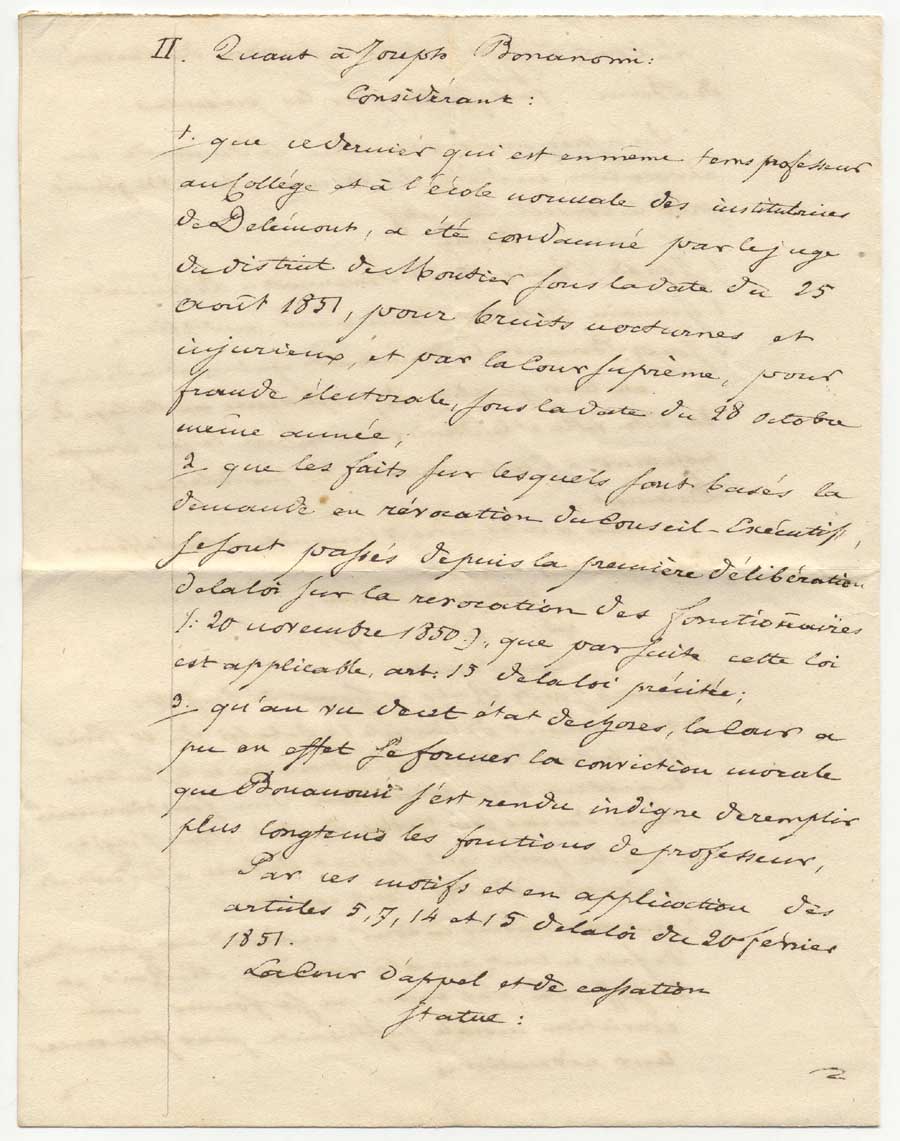 II. Quant à Joseph Bonanomi:
Considérant:
1. que ce dernier qui est en même tems professeur
au Collége et à l'école normale des institutrices
de Delémont, a été condamné par le juge
du district de Moutier sous la date du 25
août 1851, pour bruits nocturnes et
injurieux, et par la Cour suprème, pour
fraude électorale, sous la date du 28 octobre
même année;
2. que les faits sur lesquels sont basés la
demande en révocation du Conseil-Exécutif,
se sont passés depuis la première délibération
de la loi sur la revocation des fonctionnaires
(: 20 novembre 1850 :), que par suite cette loi
est applicable, art. 15 de la loi précitée;
3. qu'au vu de cet état de choses, la Cour a
pu en effet se former la conviction morale
que Bonanomi s'est rendu indigne de remplir
plus longtems les fonctions de professeur,
Par ces motifs et en application des
articles 5, 7, 14 et 15 de la loi du 20 février
1851.
La Cour d'appel et de cassation
statue:
2